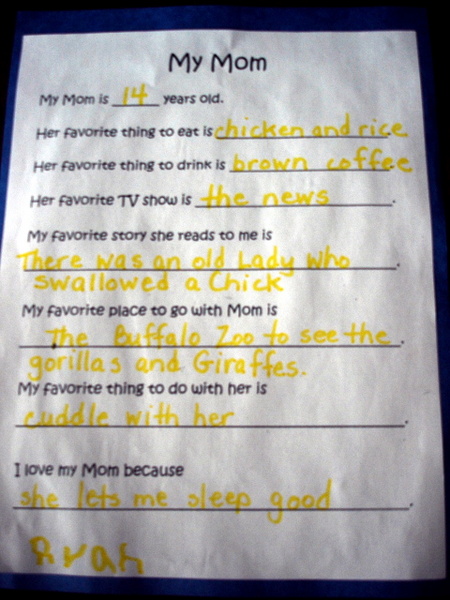 My Mom
My Mom is 14 years old.
Her favorite thing to eat is chicken and rice
Her favorite thing to drink is brown coffee.
Her favorite TV show is the news.
My favorite story she reads to me is
There was an old Lady who.
swallowed a Chick
My favorite place to go with Mom is
The Buffalo Zoo to see the.
gorillas and Giraffes.
My favorite thing to do with her is
cuddle with her.
I love my Mom because
she lets me sleep good.
Ryan